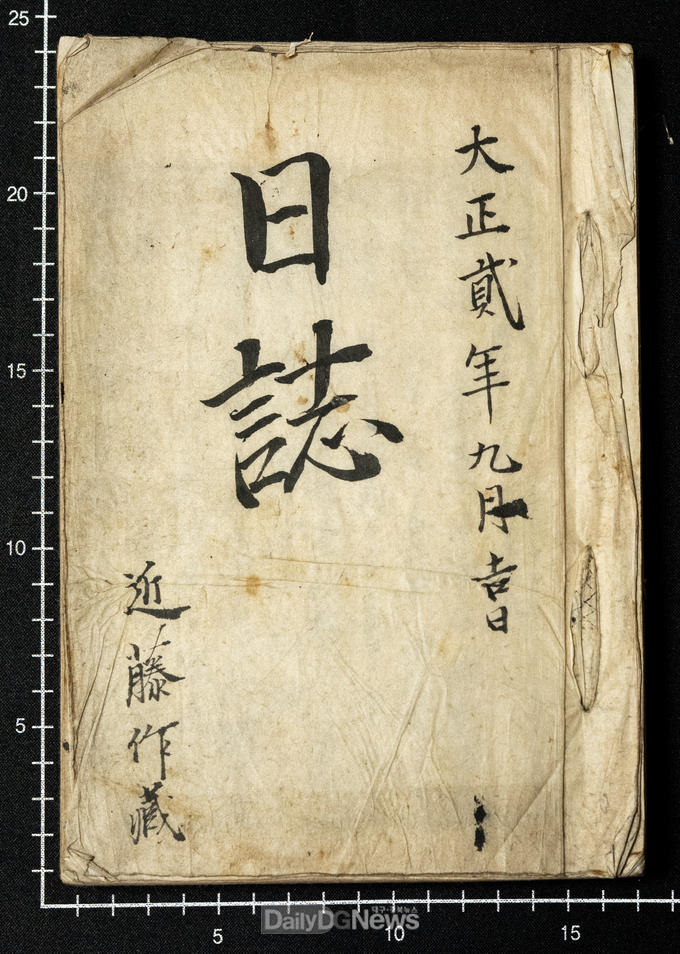 大正貳年九月吉日
日誌
近藤作藏
25
20
15
10
5
5
10
15
DailyDGNews